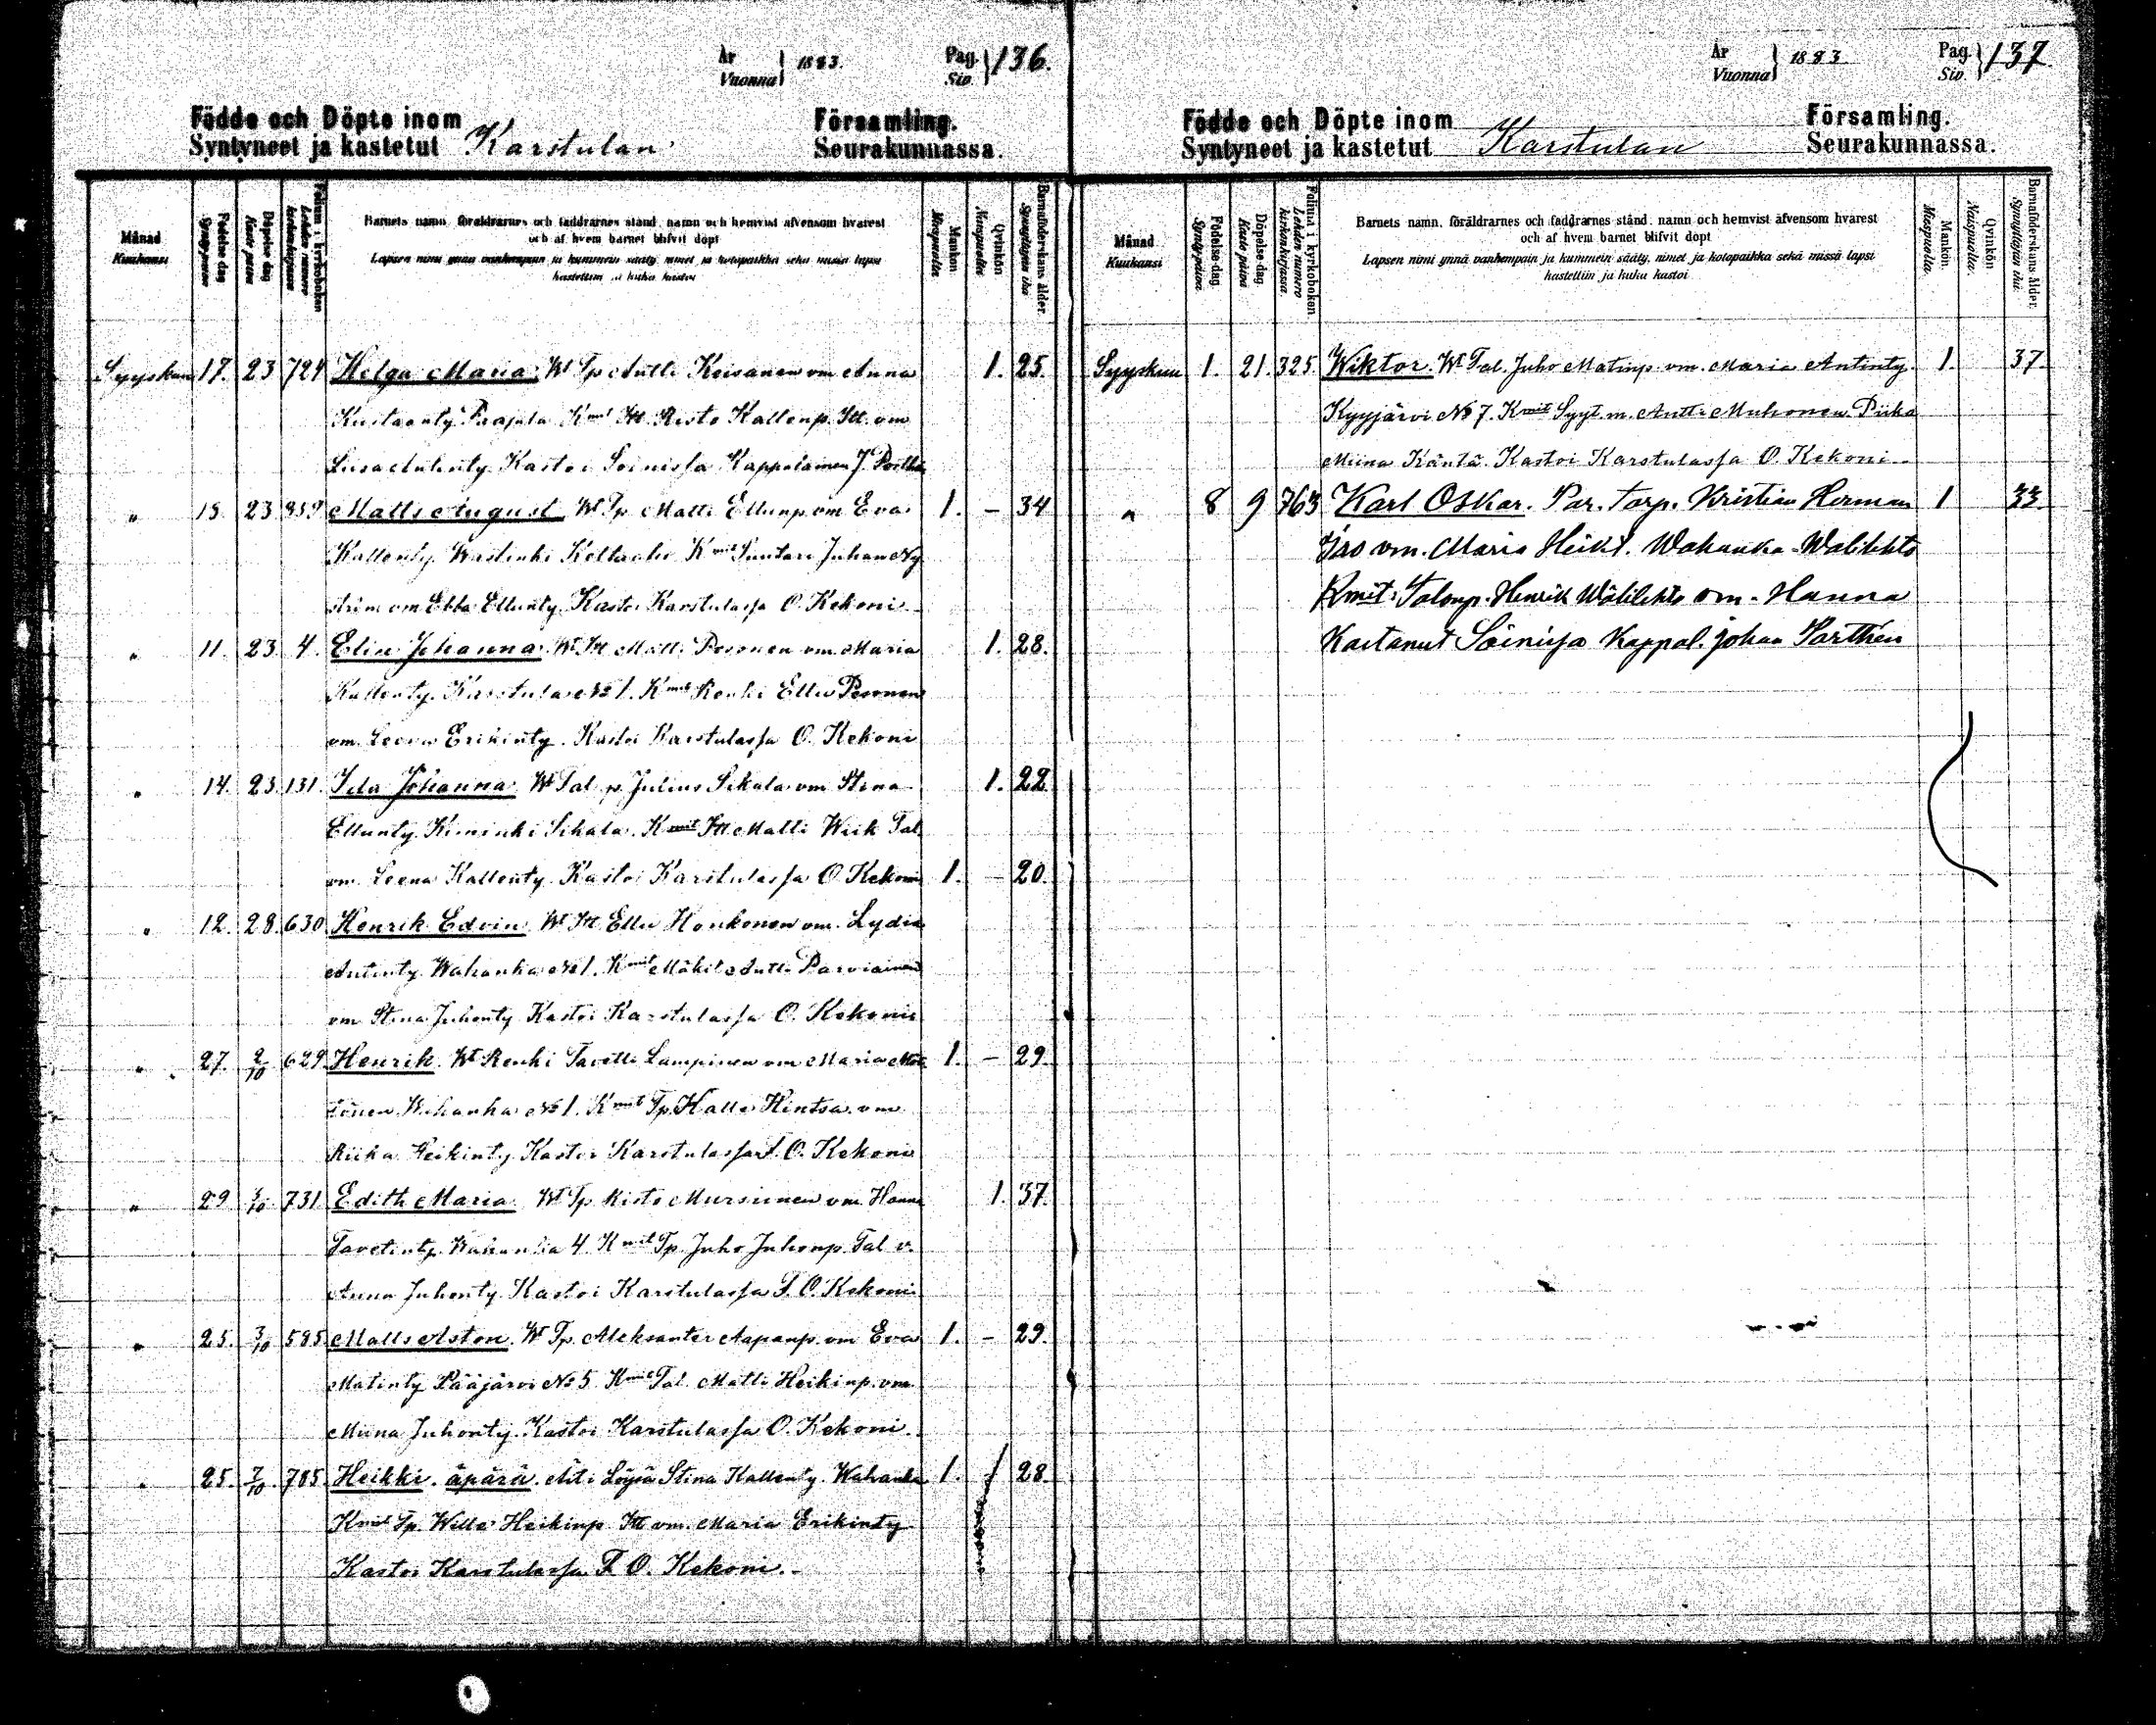 År
Vuonna } 1883.
Pag.
Siv. } 136.
Födde och Döpte inom Församling.
Syntyneet ja kastetut Karstulan Seurakunnassa.
Månad
Kuukausi
Födelse dag
Syntypäivä
Döpelse dag
Kaste päivä
Folium i kyrkoboken
Lehden numero kirkonkirjassa
Barnets namn, föräldrarnes och faddrarnes stånd, namn och hemvist äfvensom hvarest
och af hvem barnet blifvit döpt
Lapsen nimi ynnä vanhempain ja kummein sääty, nimet ja kotopaikka sekä missä lapsi
kastettiin ja kuka kastoi
Mankön.
Miespuolia.
Qvinkön
Naispuolia.
Barnaföderskans ålder.
Synnyttäjän ikä
Syyskuu 17. 23 724 Helga Maria. Wt Tp Antti Koisanen vm Anna 1. 25.
Kustaanty Paajala Kmit Itl. Risto Kallenp. Itl. vm
Liisa Antinty Kastoi Soinissa Kappalainen J.
" 15. 23. 959 Matts August Wt Tp Matti Ellunp. vm Eva 1. - 34
Kallenty Wastinki Kmit Suutari Juhan Ny
ström vm Ebba Ellunty. Kastoi Karstulassa O. Kekoni
" 11. 23. 4. Elin Johanna. Wt. Itl Matti Pesonen vm. Maria 1. 28.
Kallenty. Karstula No 1. Kmit Renki Ellu Pesonen
vm. Leena Erikinty. Kastoi Karstulassa O. Kekoni
" 14. 23. 131. Ida Johanna. Wt Tal p. Julius Sikala vm Stina 1. 22
Ellunty. Kiminki Sikala. Kmit Itl Matti Wiik Tal.
vm. Leena Kallenty. Kastoi Karstulassa O. Kekoni 1. - 20.
" 12. 28. 630. Henrik Edvin Wt Itl Ellu Honkonen vm. Lydia
Antinty. Wahanka No 1. Kmit Mäkit. Antti Parviainen
vm Stina Juhonty Kastoi Karstulassa O. Kekoni
" 27. 2/10 629. Henrik. Wt Renki Tavetti Lampinen vm Maria 1. - 29.
Wahanka No 1. Kmit Tp. Kalle Hintsa vm
Riika Heikinty Kastoi Karstulassa T. O. Kekoni
" 29 3/10. 731. Edith Maria. Wt Tp Risto Mursunen vm. Hanna 1. 37.
Tavetinty. Wahanka 4. Kmit Tp. Juho Juhonp. Tal v.
Anna Juhonty. Kastoi Karstulassa T. O. Kekoni
" 25. 3/10 585. Matts Aston. Wt Tp. Aleksanter Aapanp. vm Eva 1. - 29.
Matinty Pääjärvi No 5. Kmit Tal. Matti Heikinp. vm
Miina Juhonty. Kastoi Karstulassa O. Kekoni.
" 25. 7/10. 785. Heikki. äpärä. Äiti Löysä Stina Kallenty. Wahanka 1. 28.
Kmit Tp. Wille Heikinp. Itl vm. Maria Erikinty
Kastoi Karstulassa T. O. Kekoni.
År
Vuonna } 1883
Pag.
Siv. } 137
Födde och Döpte inom Församling.
Syntyneet ja kastetut Karstulan Seurakunnassa.
Månad
Kuukausi
Födelse dag
Syntypäivä.
Döpelse dag
Kaste päivä
Folium i kyrkoboken
Lehden numero kirkonkirjassa.
Barnets namn, föräldrarnes och faddrarnes stånd, namn och hemvist äfvensom hvarest
och af hvem barnet blifvit döpt
Lapsen nimi ynnä vanhempain ja kummein sääty, nimet ja kotopaikka sekä missä lapsi
kastettiin ja kuka kastoi
Mankön.
Miespuolia.
Qvinkön
Naispuolia.
Barnaföderskans ålder.
Synnyttäjän ikä.
Syyskuu 1. 21. 325. Wiktor. Wt Tal. Juho Matinp. vm. Maria Antinty. 1. 37.
Kyyjärvi No 7. Kmit Syyt. m. Antti Muhonen. Piika
Miina Käntä. Kastoi Karstulassa O. Kekoni
" 8 9 763 Karl Oskar. Par. Torp. Kristian Herman 1 33.
vm. Maria Heikt. Wahanka - Walilehto
Kmit: Talonp. Henrik Walilehto vm. Hanna
Kastanut Soinissa Kappal. Johan